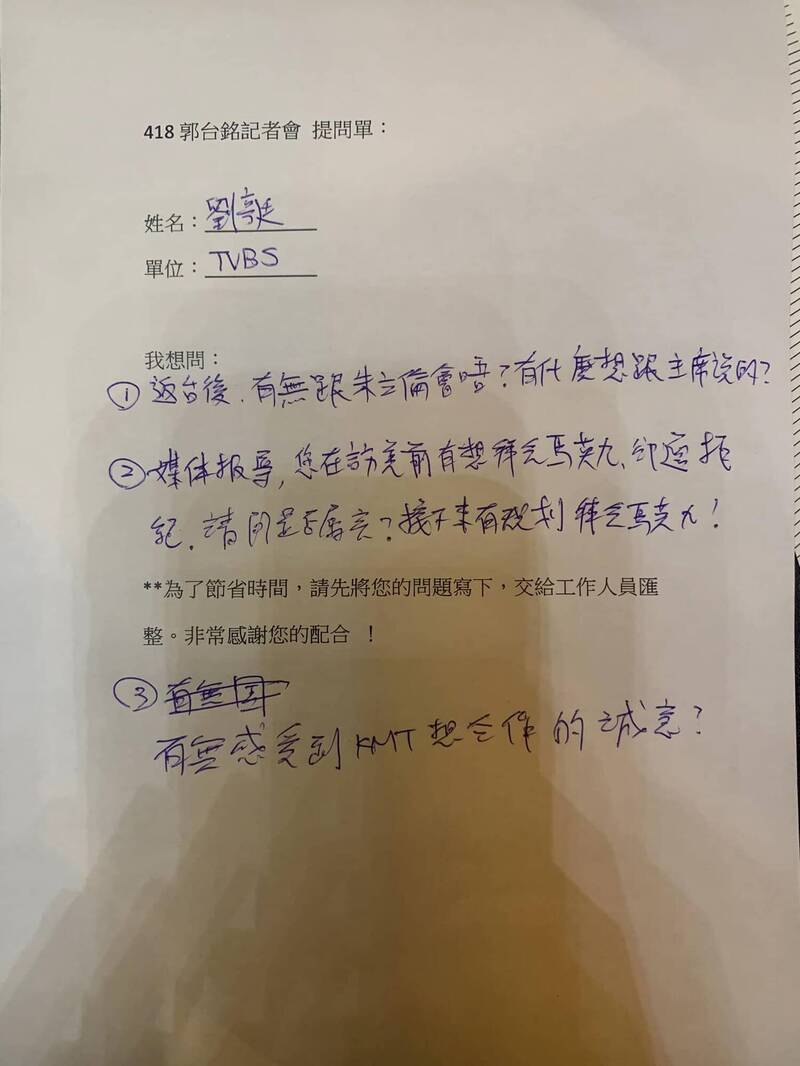 418 郭台銘記者會 提問單：
姓名：劉亭廷
單位：TVBS
我想問：
① 返台後、有無跟朱立倫會晤？有什麼想跟主席說的？
② 媒体报导，您在訪美前有想拜会馬英九、卻遭拒
絕，請問是否屬实？接下來有规划拜会馬英九！
**為了節省時間，請先將您的問題寫下，交給工作人員匯
整。非常感謝您的配合 ！
③ 有無
有無感受到 KMT 想合作的誠意？